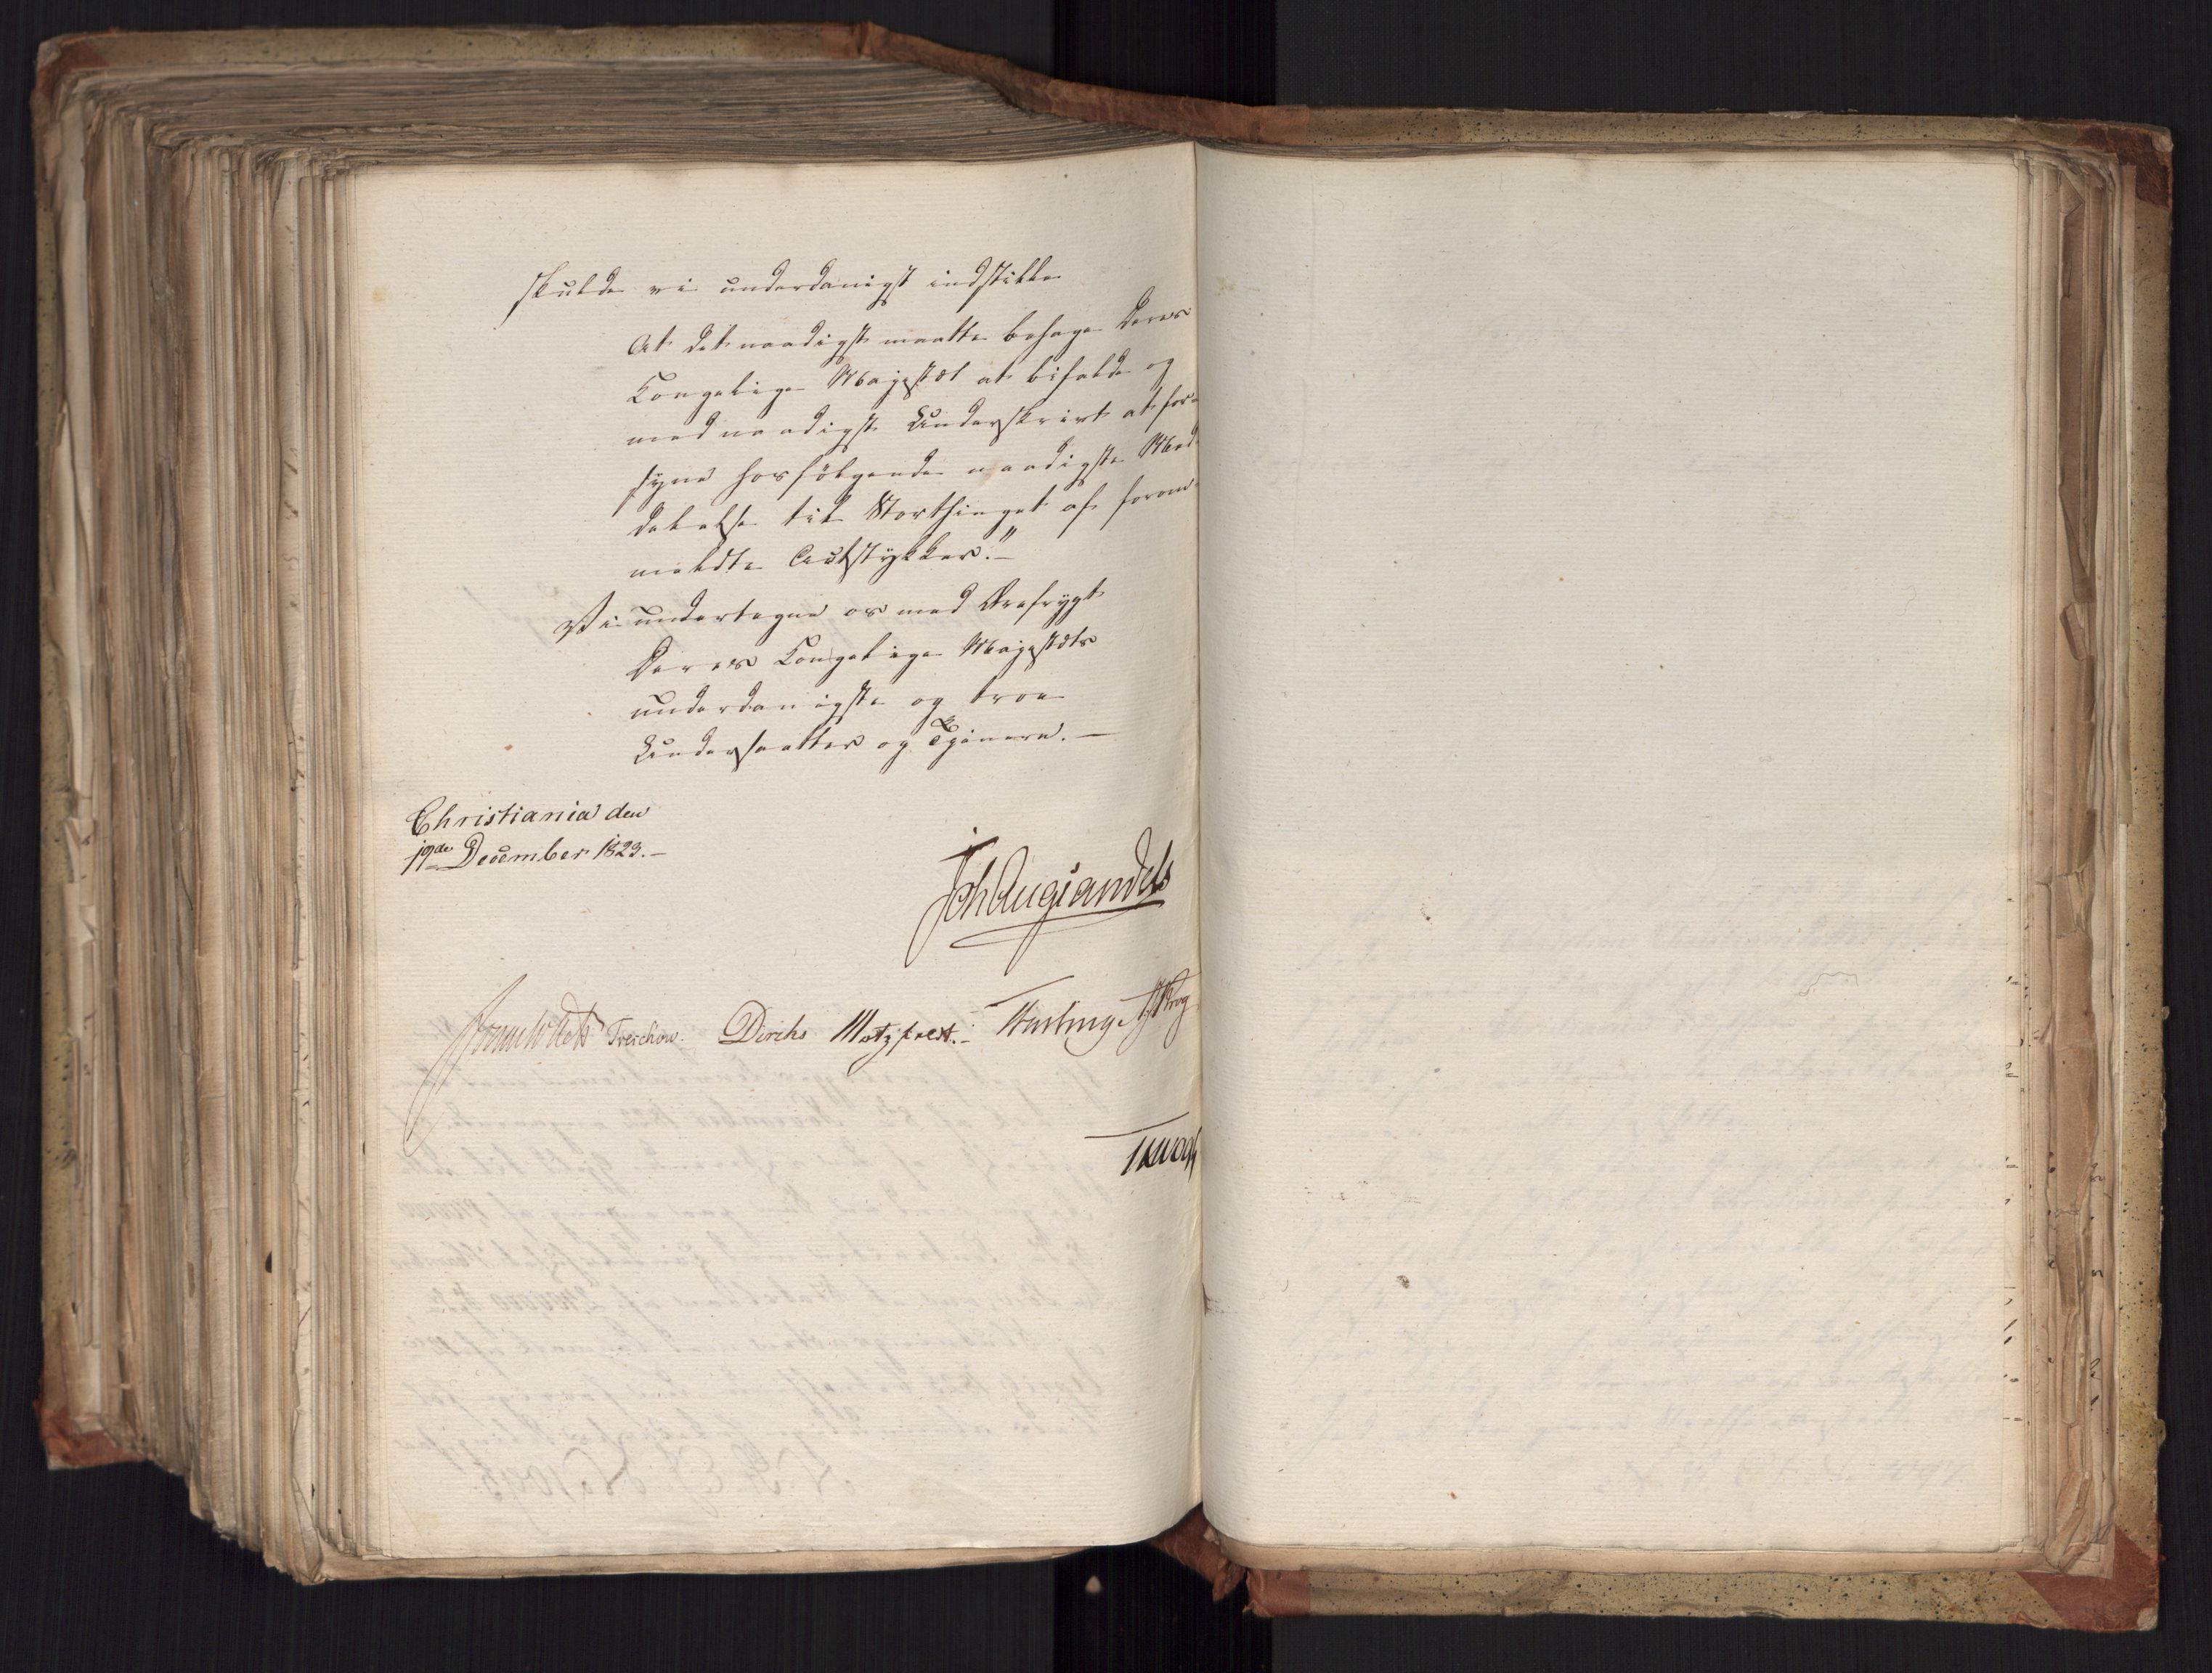 skulde vi underdanigst indstille
At det naadigst maatte behage Deres
Kongelige Majestæt at bifalde og
med naadigst Underskrivt at for-
syne hosfölgende naadigste Med-
delelse til Storthinget af foran-
meldte Actstykker."-
Vi undertegne os med Ærefrygt
Deres Kongelige Majestæts
underdanigste og troe
Undersaatter og Tjenere. -
Christiania den
19de December 1823. -
JohAugSandels
Treschow. Diriks Motzfeldt. -